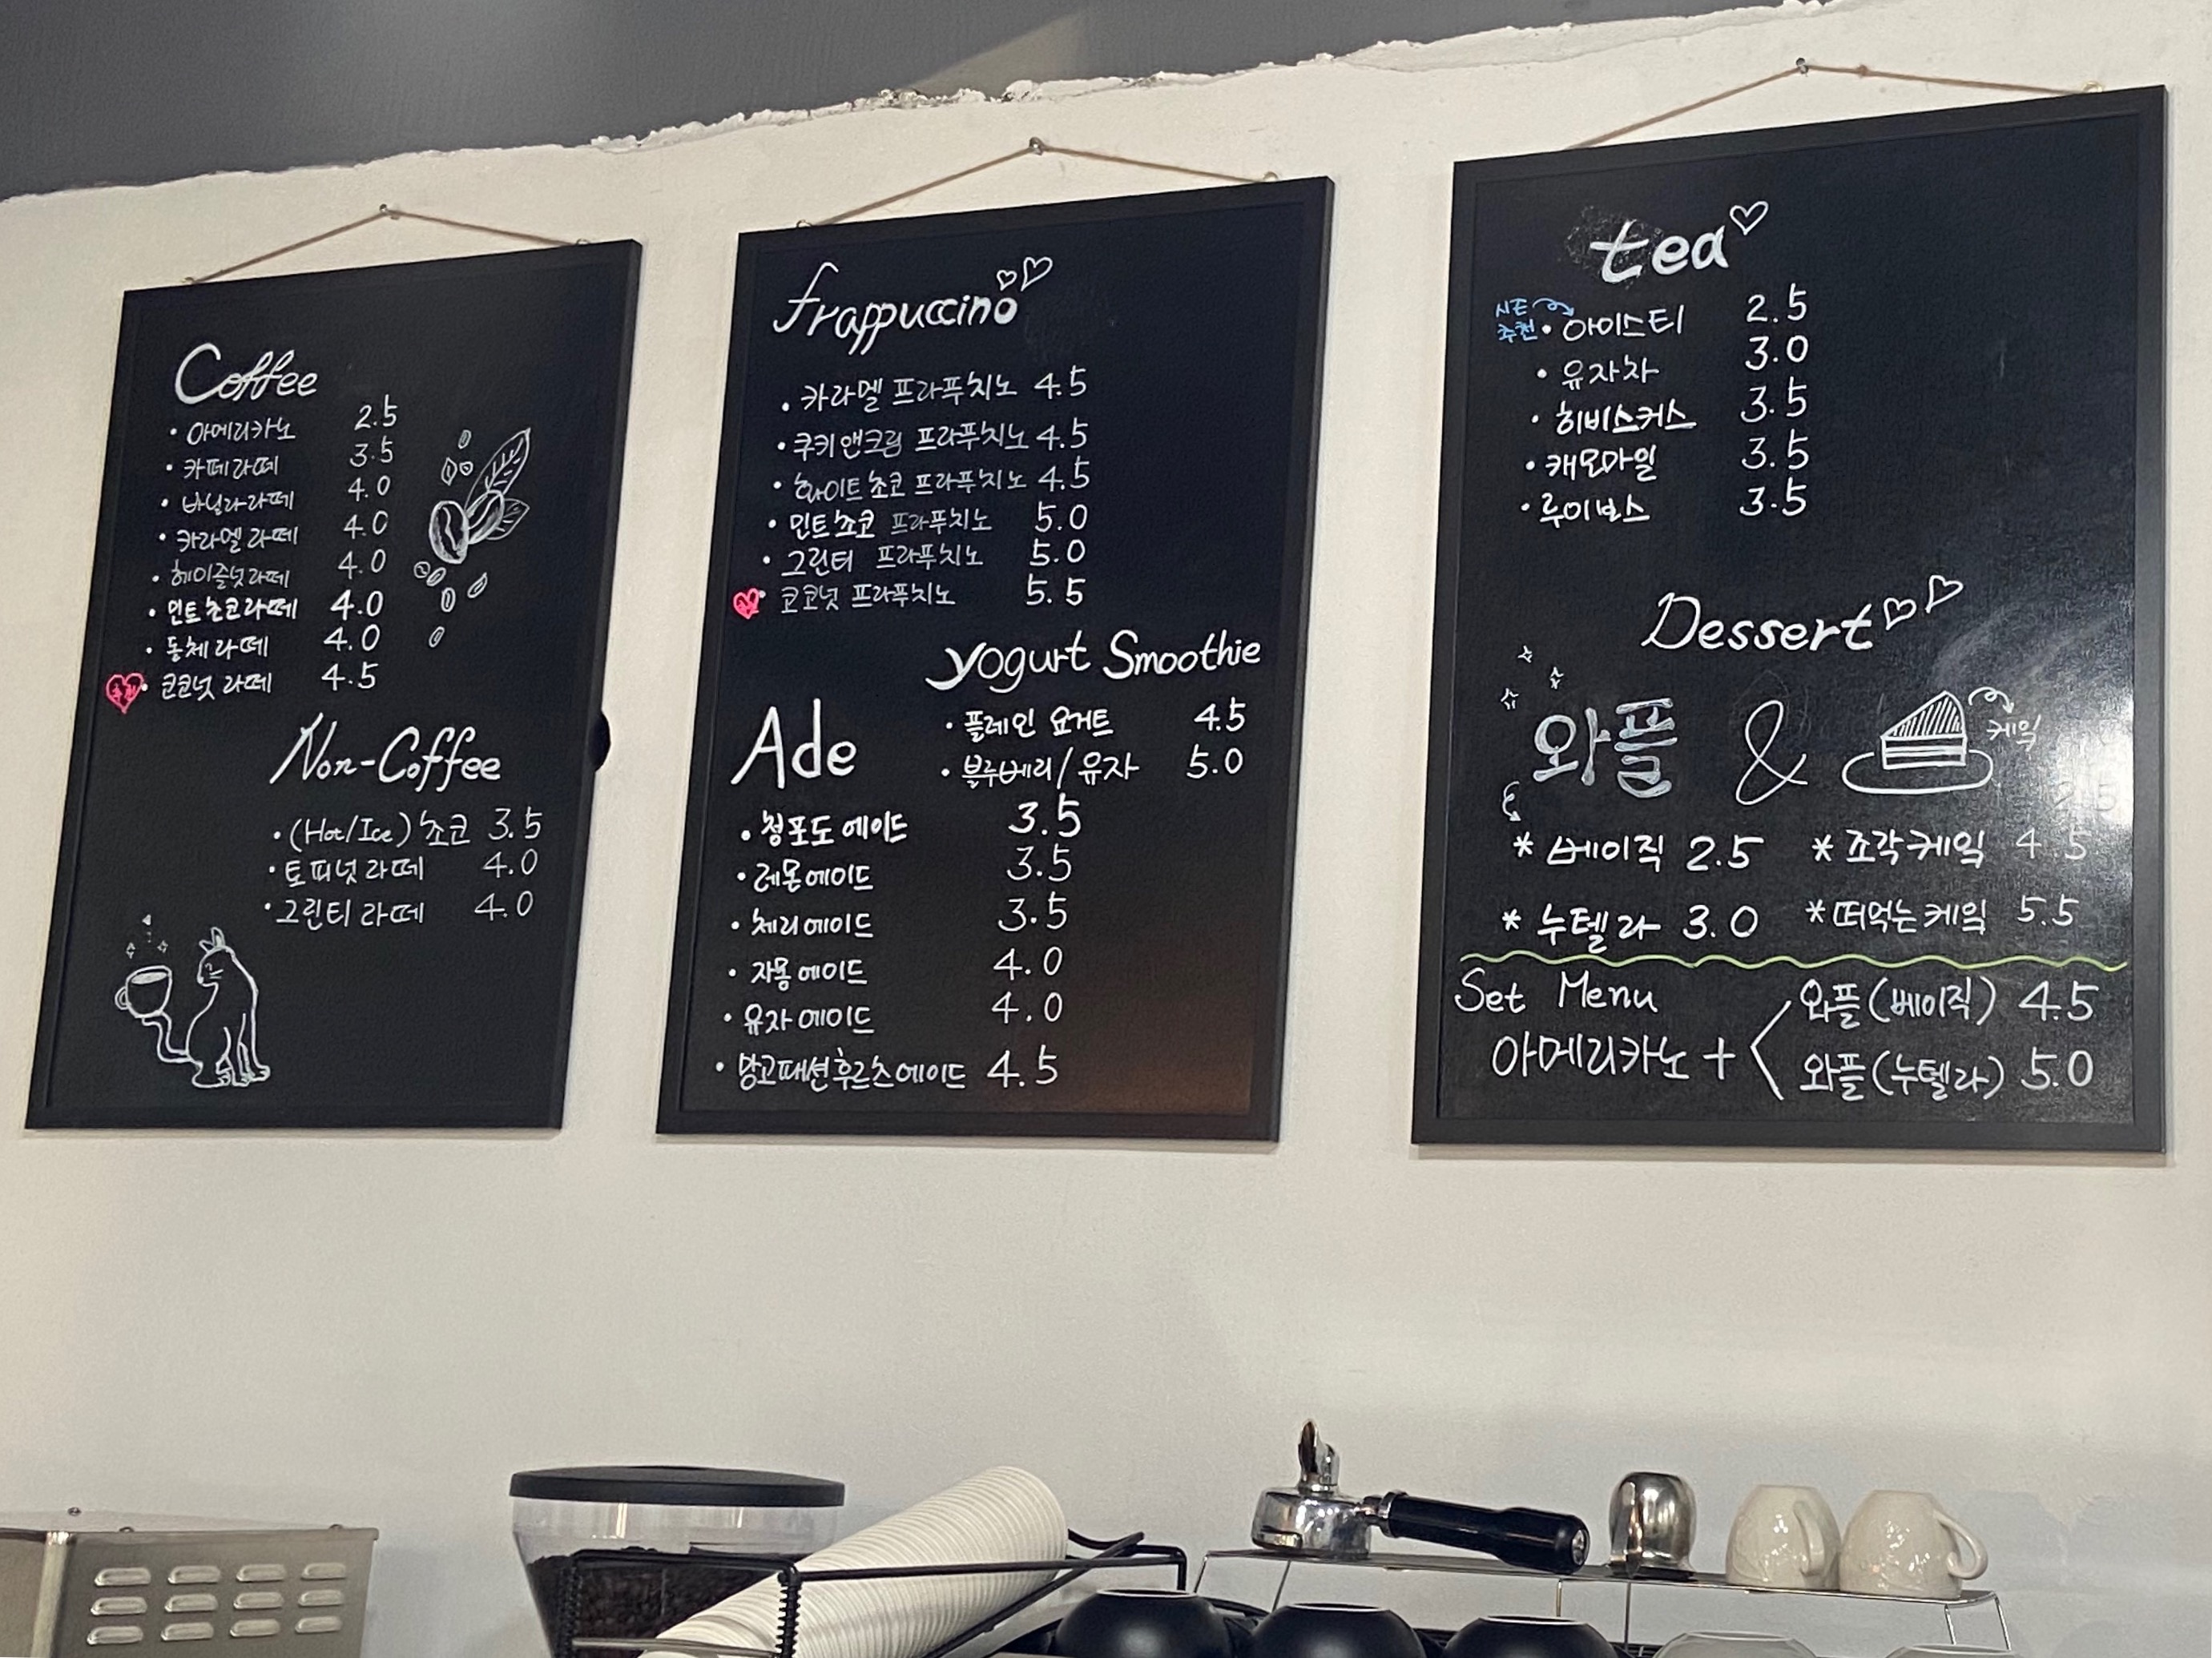 Coffee
• 아메리카노 2.5
• 카페라떼 3.5
• 바닐라라떼 4.0
• 카라멜 라떼 4.0
• 헤이즐넛라떼 4.0
• 민트초코라떼 4.0
• 돌체라떼 4.0
추천 • 코코넛 라떼 4.5
Non-Coffee
• (Hot/Ice) 초코 3.5
• 토피넛 라떼 4.0
• 그린티 라떼 4.0
frappuccino
• 카라멜 프라푸치노 4.5
• 쿠키앤크림 프라푸치노 4.5
• 화이트초코 프라푸치노 4.5
• 민트초코 프라푸치노 5.0
• 그린티 프라푸치노 5.0
• 코코넛 프라푸치노 5.5
yogurt Smoothie
• 플레인 요거트 4.5
• 블루베리/유자 5.0
Ade
• 청포도 에이드 3.5
• 레몬에이드 3.5
• 체리에이드 3.5
• 자몽에이드 4.0
• 유자에이드 4.0
• 망고패션후르츠에이드 4.5
tea
시즌
추천 • 아이스티 2.5
• 유자차 3.0
• 히비스커스 3.5
• 캐모마일 3.5
• 루이보스 3.5
Dessert
와플 & 케익
* 베이직 2.5 * 조각케익 4.5
* 누텔라 3.0 * 떠먹는케익 5.5
Set Menu 와플(베이직) 4.5
아메리카노 + 와플(누텔라) 5.0